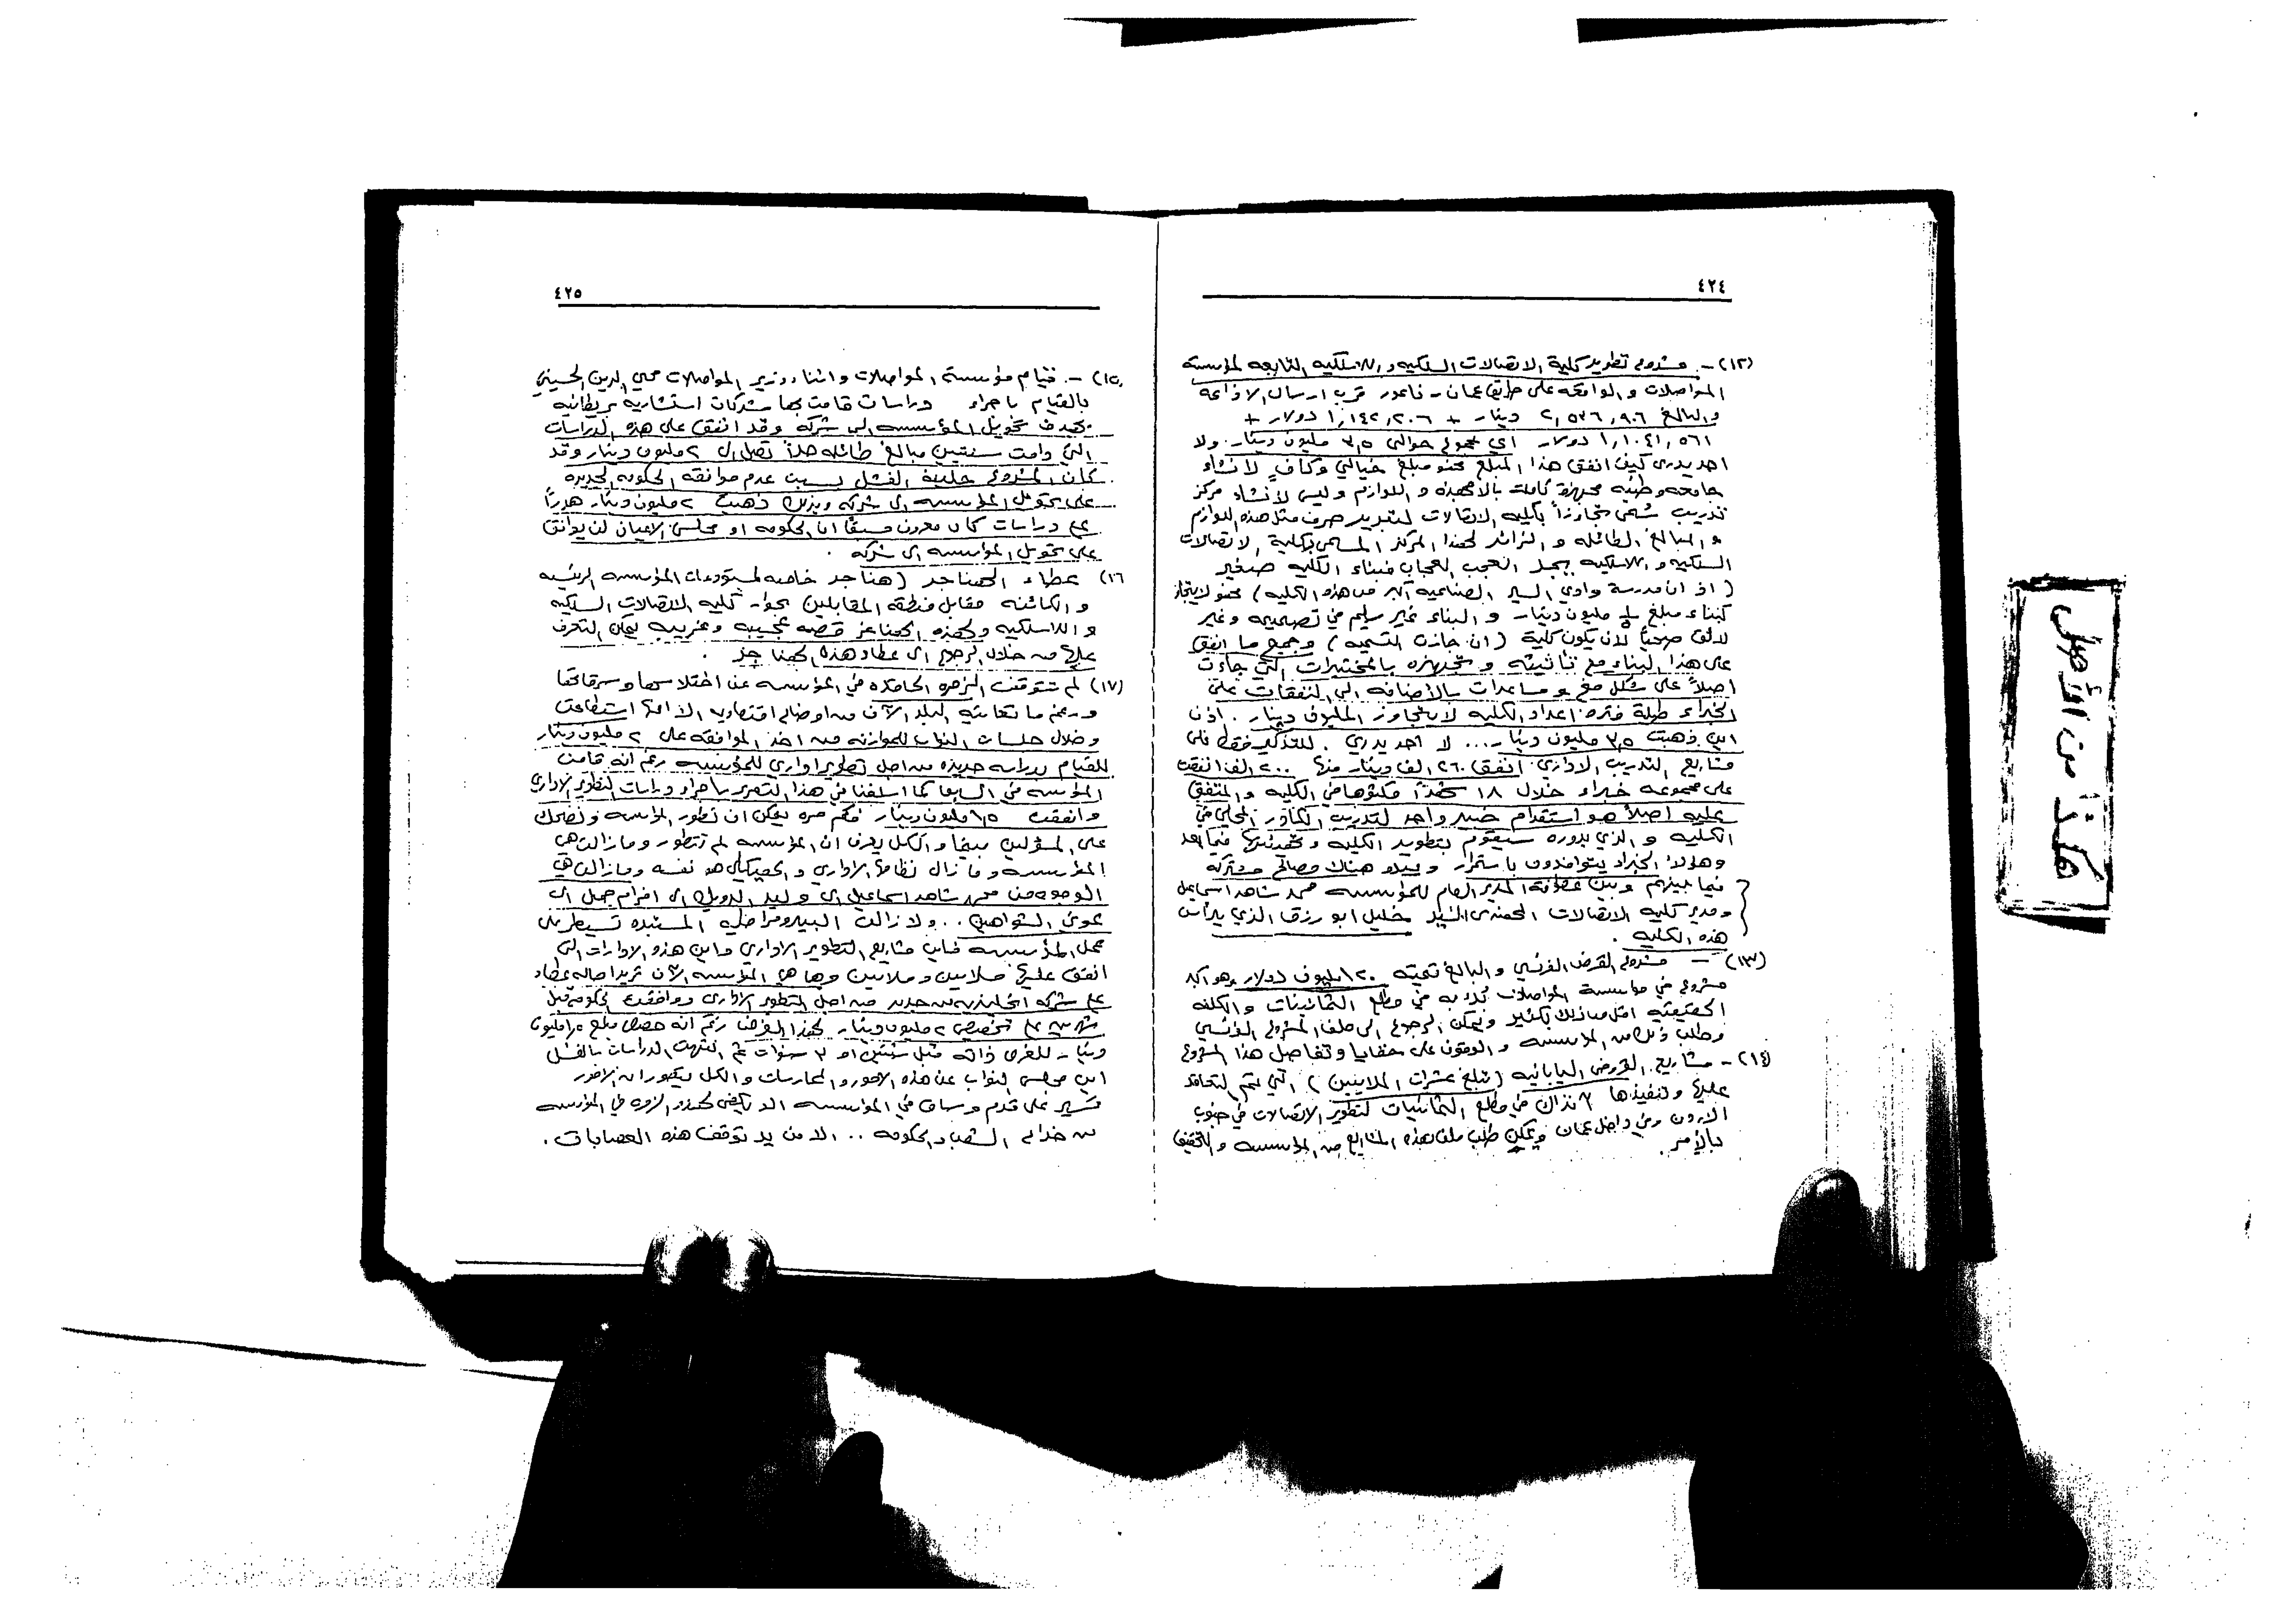 ٤٢٤
(١٢) - مشروع تطوير كلية الاتصالات السلكيه واللاسلكيه التابعه لمؤسسة
المواصلات والواقعه على طريق عمان - ناعور قرب ارسال الاذاعة
والبالغ ٢,٥٣٦,٩٠٦ دينار + ١,١٤٢,٢٠٦ دولار +
١,١٠٤١,٥٦١ دولار اي مجموع حوالي ٣,٥ مليون دينار. ولا
احد يدري كيف انفق هذا المبلغ فهو مبلغ خيالي وكافٍ لانشاء
جامعه وطنيه مجهزة كاملة بالاجهزه واللوازم وليس لانشاء مركز
تدريب سُمى تجاوزاً بكليه الاتصالات لتبرير صرف مثل هذه اللوازم
والمبالغ الطائله والزائد لهذا المركز المسمى بكلية الاتصالات
السلكيه واللاسلكيه يجد العجب العجاب فبناء الكليه صغير
(اذ ان مدرسة وادي السير الصناعيه اكبر من هذه الكليه) فهو لا يتجاوز
كبناء مبلغ مليون دينار والبناء غير سليم في تصميمه وغير
لائق صحياً لان يكون كلية (ان جازت التسميه) وجميع ما انفق
على هذا البناء مع تأثيثه وتجهيزه بالمختبرات التي جاءت
اصلاً على شكل منح ومساعدات بالاضافه الى النفقات على
الخبراء طيلة فتره اعداد الكليه لا يتجاوز المليون دينار. اذن
اين ذهبت ٣,٥ مليون دينار ... لا احد يدري. للتذكير فقط ففي
مشاريع التدريب الاداري انفق ٢٦٠ الف دينار منها ٢٠٠ الف انفقت
على مجموعه خبراء خلال ١٨ شهراً مكثوها في الكليه والمتفق
عليه اصلاً هو استقدام خبير واحد لتدريب الكادر المحلي في
الكليه والذي بدوره سيقوم بتطوير الكليه فيما بعد
وهؤلاء الخبراء يتوافدون باستمرار هناك مصالح مشتركه
فيما بينهم وبين عطوفة المدير العام للمؤسسه محمد شاهد اسماعيل
ومدير كليه الاتصالات المهندس السيد خليل ابو رزق الذي يرأس
هذه الكليه.
(١٣) - مشروع القرض الفرنسي والبالغ قيمته ١٢٠ مليون دولار وهو اكبر
مشروع في مؤسسة المواصلات في مطلع الثمانينات والكلفه
الحقيقيه اقل من ذلك بكثير ويمكن الرجوع الى ملف المشروع الفرنسي
وطلب ذلك من المؤسسه والوقوف على خفايا وتفاصيل هذا المشروع
(١٤) - مشاريع القروض اليابانيه (تبلغ عشرات الملايين) التي تم التعاقد
عليها وتنفيذها آنذاك في مطلع الثمانينات لتطوير الاتصالات في جنوب
الاردن وفي داخل عمان ويمكن طلب ملف هذه المشاريع من المؤسسه والتحقيق
بالأمر.
٤٢٥
(١٥) - قيام مؤسسة المواصلات واثناء وزير المواصلات محي الدين الحسيني
بالقيام باجراء دراسات قامت بها شركات استشاريه بريطانيه
بهدف تحويل المؤسسه الى شركه وقد انفق على هذه الدراسات
التي دامت سنتين مبالغ طائله جداً تصل الى ٢ مليون دينار وقد
كان المشروع حليفه الفشل بسبب عدم موافقه الحكومه الجديده
على تحويل المؤسسه الى شركه وبذلك ذهبت ٢ مليون دينار هدراً
على دراسات كان معروف مسبقاً ان الحكومه او مجلس الاعيان لن يوافق
على تحويل المؤسسه الى شركه.
(١٦) عطاء الهناجر (هناجر خاصه لمستودعات المؤسسه الرئيسيه
والكائنه مقابل منطقة المقابلين بجوار كليه الاتصالات السلكيه
واللاسلكيه ولهذه الهناجر قصه عجيبه وغريبه يمكن التعرف
عليها من خلال الرجوع الى عطاء هذه الهناجر.
(١٧) لم تتوقف الزمره الحاقده في المؤسسه عن اختلاسها وسرقاتها
ورغم ما تعانيه البلد الآن من اوضاع اقتصاديه استطاعت
وخلال جلسات النواب للموازنه من اخذ الموافقه على ٢ مليون دينار
للقيام بدراسه جديده من اجل تطوير اداري للمؤسسه رغم انه قامت
المؤسسه في السابق كما اسلفنا في هذا التقرير باجراء دراسات التطوير الاداري
وانفقت ١,٥ مليون دينار فكم مره يمكن ان تطور المؤسسه ونضحك
على المسؤولين فيها والكل يعرف ان المؤسسه لم تتطور ومازالت هي
المؤسسه ومازال نظامها الاداري والهيكلي هو نفسه ومازالت هي
الوجوه من محمد شاهد اسماعيل الى وليد الدويك الى افرام جمل الى
عوني الشواهين .. ولا زالت البيروقراطيه المستبده تسيطر على
عمل المؤسسه فاين مشاريع التطوير الاداري واين هذه الادارات التي
انفق عليها ملايين وملايين وها هي المؤسسه الآن تريد احالة عطاء
على شركه انجليزيه من جديد من اجل التطوير الاداري ووافقت الحكومه قبل
شهرين على تخصيص ٢ مليون دينار لهذا الغرض رغم انه خصص مبلغ ١,٥ مليون
دينار للغرض ذاته قبل سنتين او ٣ سنوات ثم انتهت الدراسات بالفشل
اين مجلس النواب عن هذه الامور والممارسات والكل يتصور ان الامور
تسير على قدم وساق في المؤسسه الا يكفي لهذه الزمره في المؤسسه
من خداع الشعب والحكومه .. الا من يد توقف هذه العصابات.
هكذا من الأصل